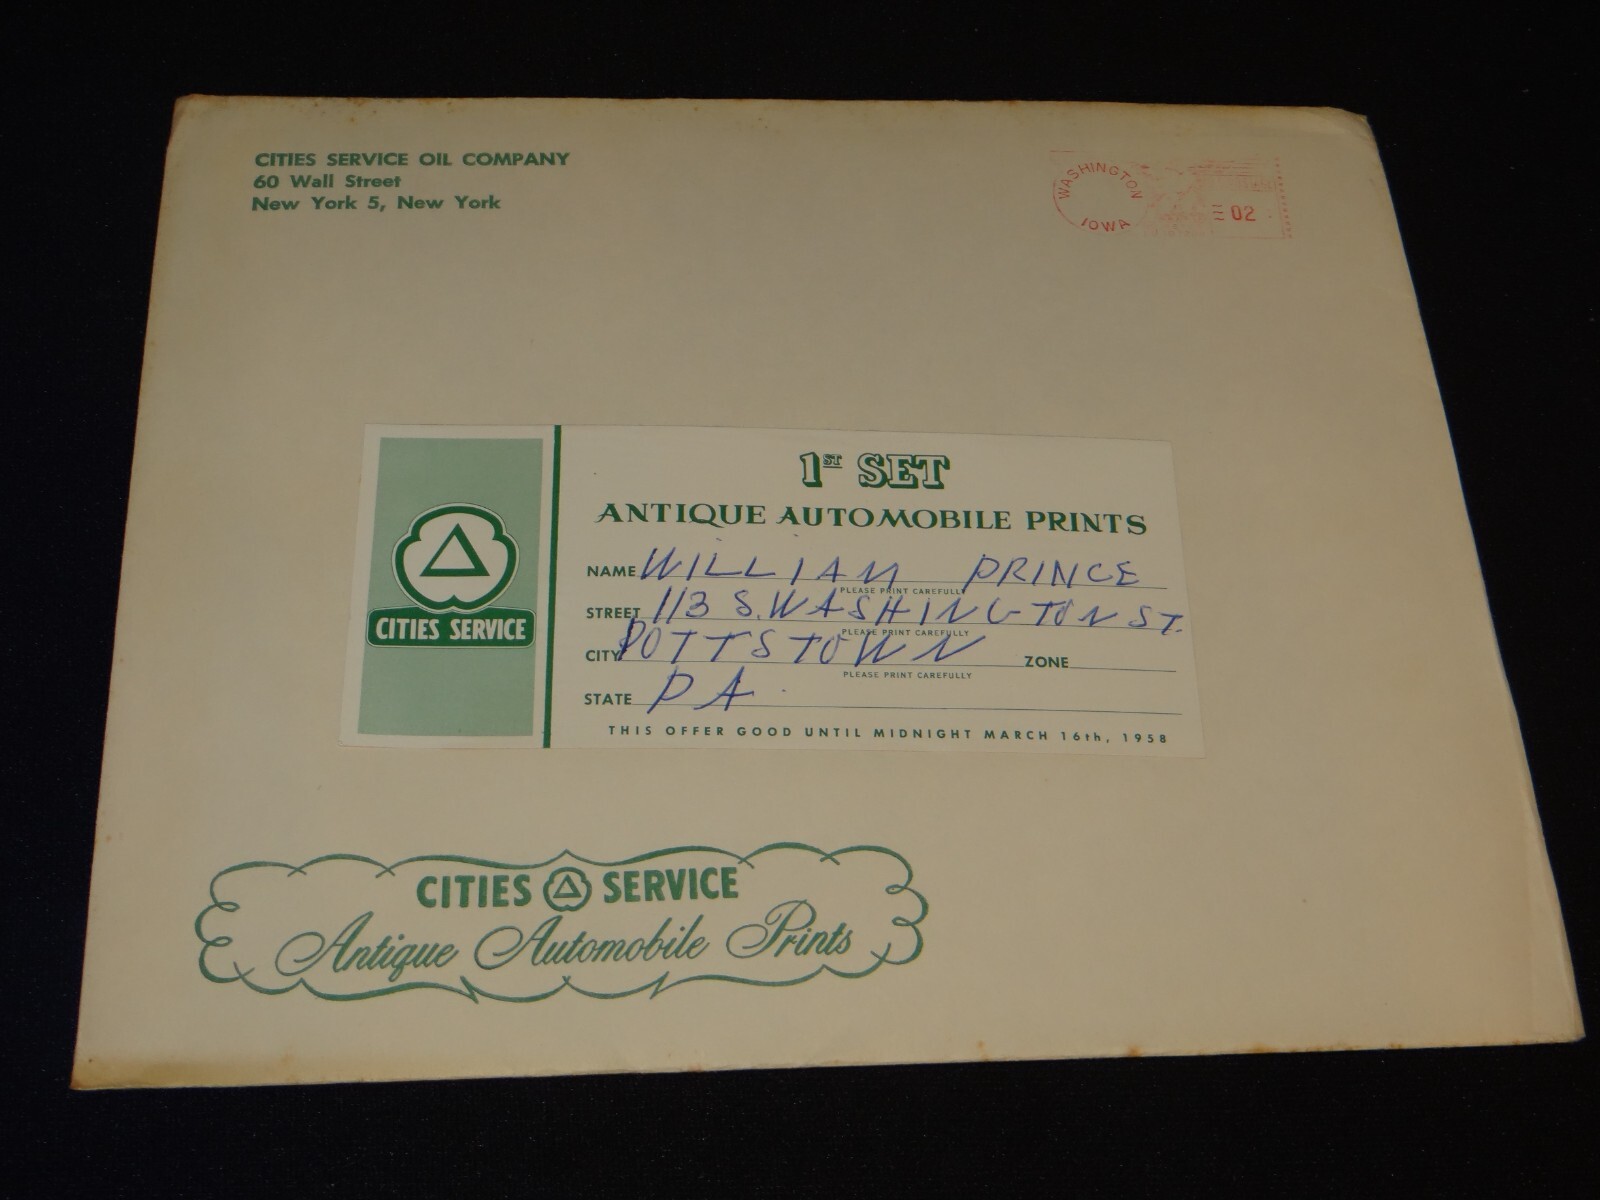 CITIES SERVICE OIL COMPANY
60 Wall Street
New York 5, New York
WASHINGTON
IOWA
02
1ST SET
ANTIQUE AUTOMOBILE PRINTS
NAME WILLIAM PRINCE
PLEASE PRINT CAREFULLY
STREET 113 S. WASHINGTON ST.
PLEASE PRINT CAREFULLY
CITY POTTSTOWN ZONE
PLEASE PRINT CAREFULLY
STATE PA
THIS OFFER GOOD UNTIL MIDNIGHT MARCH 16th, 1958
CITIES SERVICE
CITIES SERVICE
Antique Automobile Prints